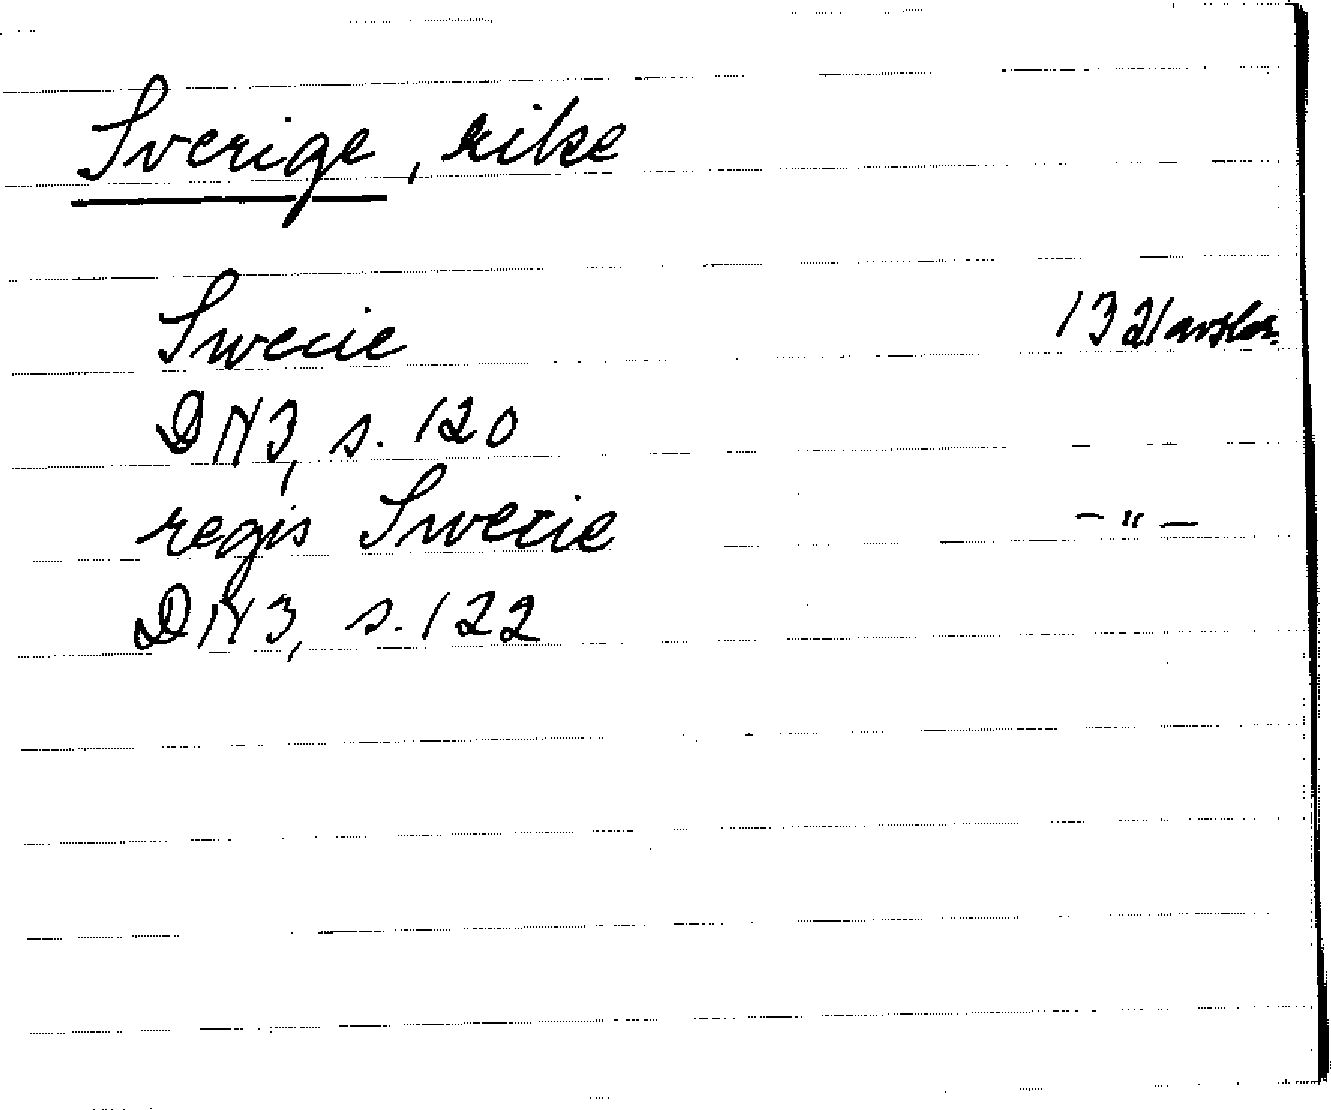 Sverige, rike
Swecie 1321 avskr.
DN3, s. 120
regis Swecie -"-
DN3, s. 122